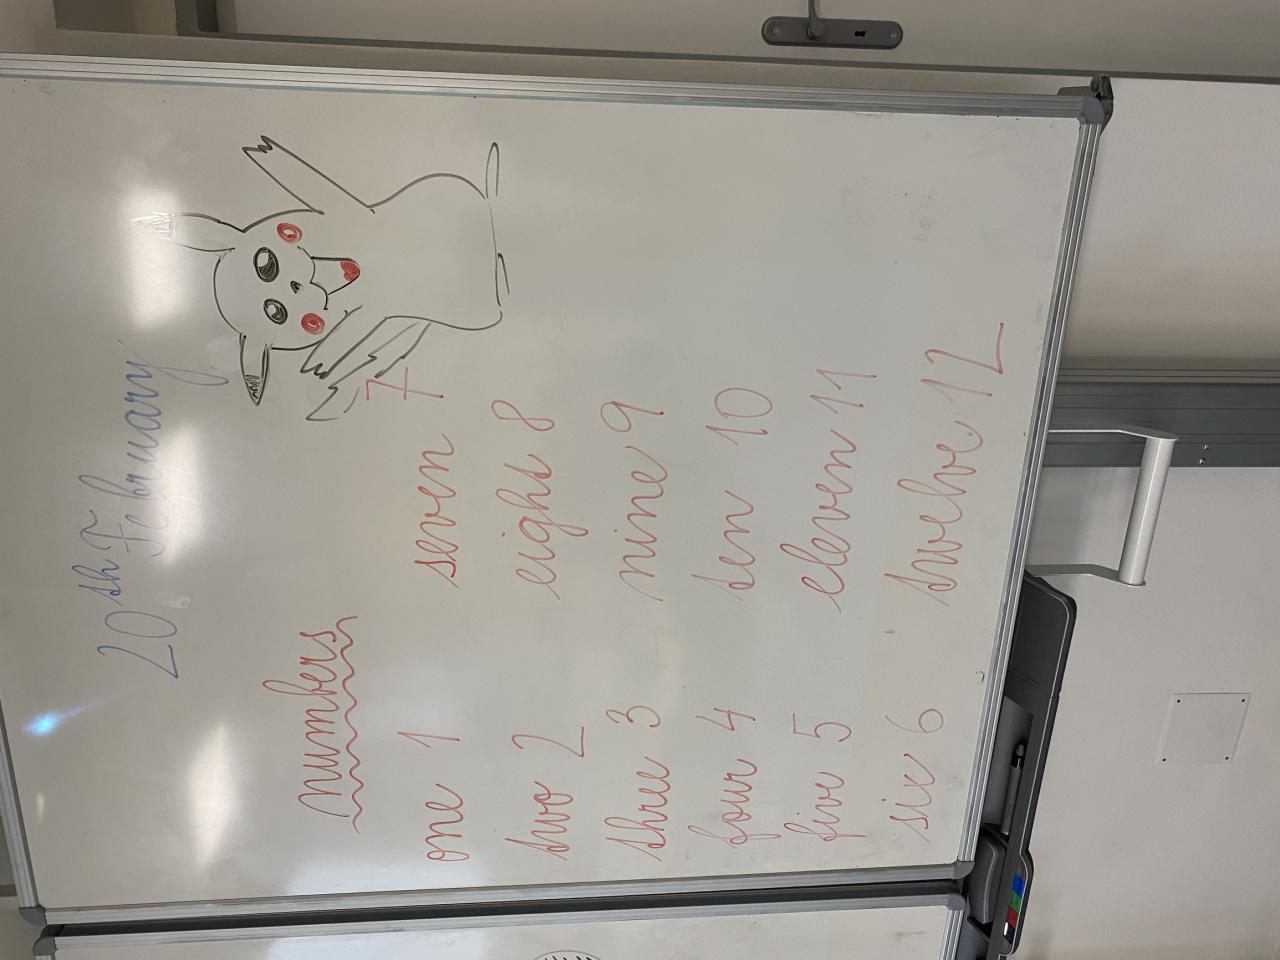 20th February
numbers
one 1
two 2
three 3
four 4
five 5
six 6
seven 7
eight 8
nine 9
ten 10
eleven 11
twelve 12